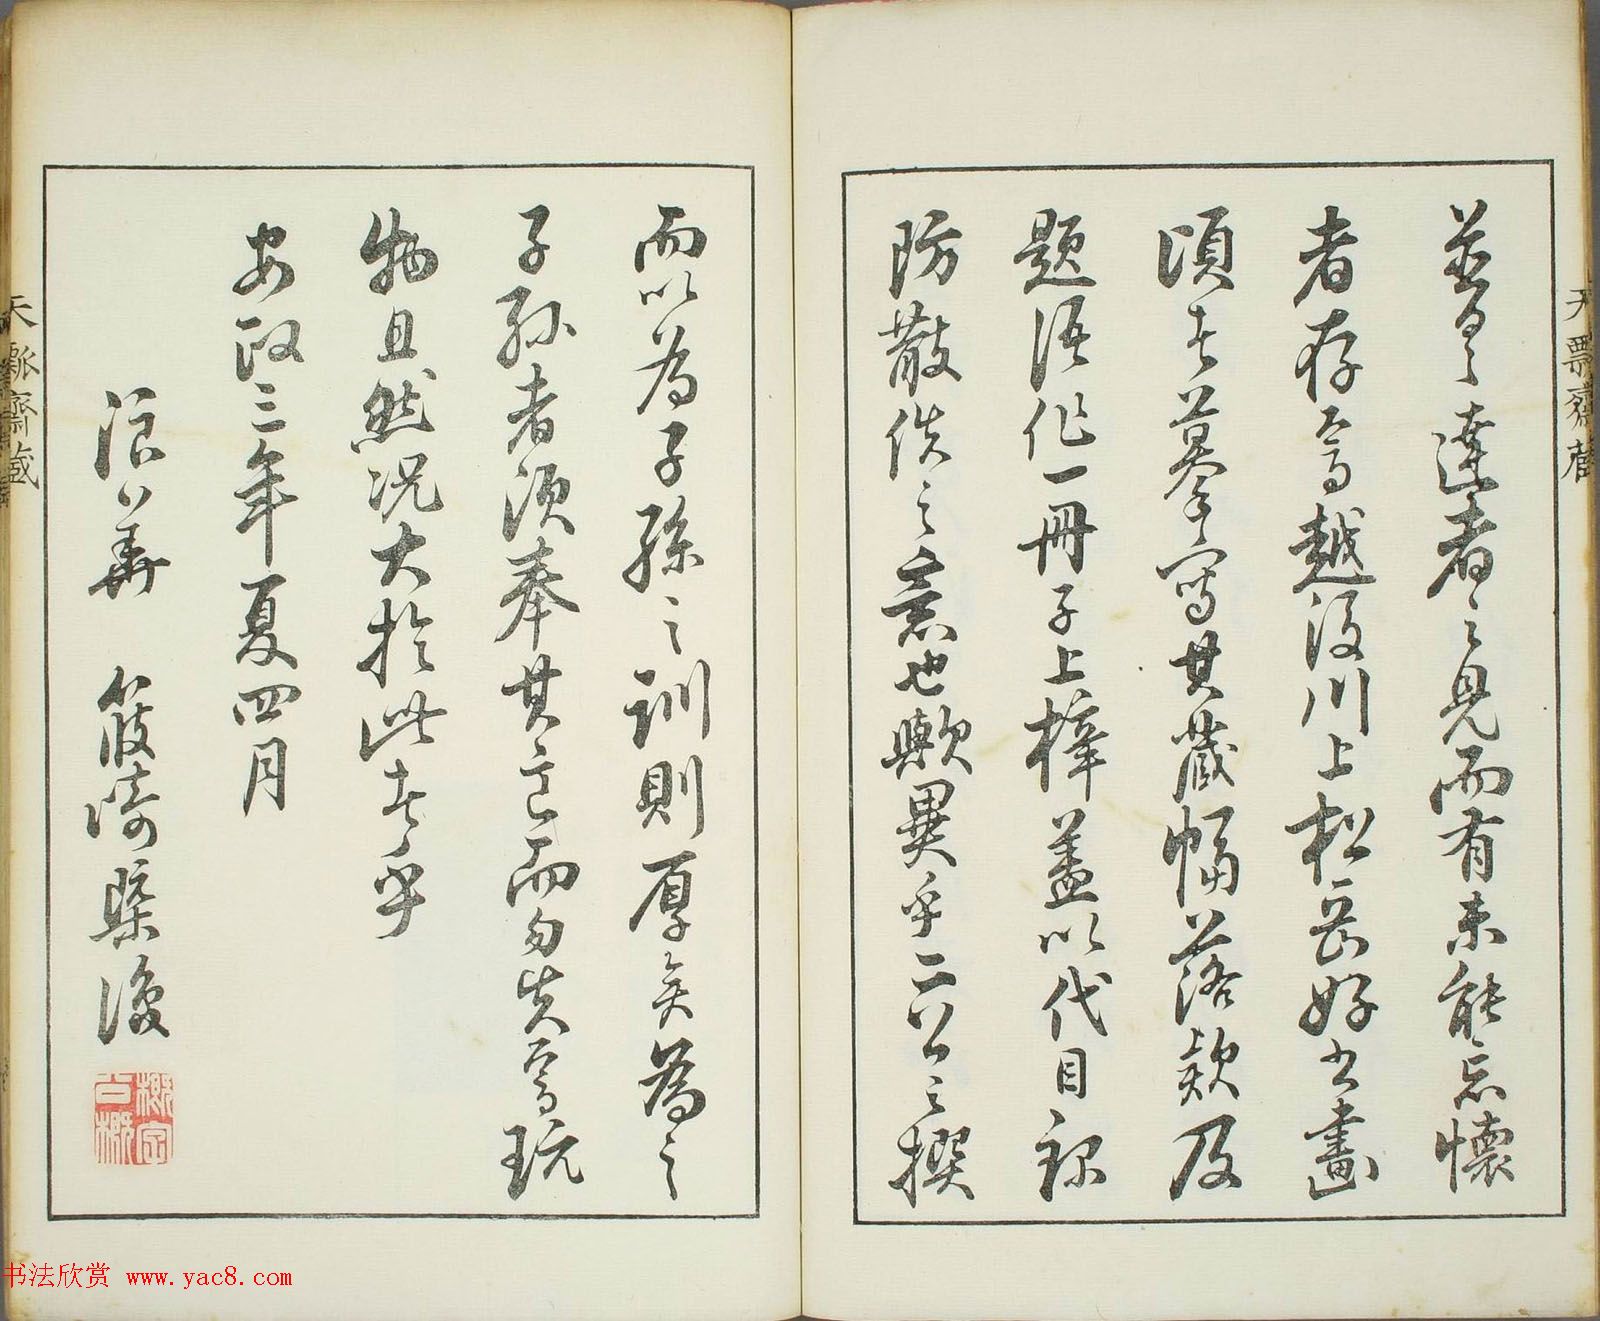 達者之見而有未能忘懷
者存焉越後川上松岳好書畫
頃者摹寫其藏幅落款及
題語作一冊子上梓蓋以代目錄
防散佚之意也歟異乎二公之撰
而以為子孫之訓則厚矣為之
子孫者須奉其而勿失焉玩
物且然況大於此者乎
安政三年夏四月
浪華 筱崎槩
天瓢齋藏
天瓢齋藏
书法欣赏 www.yac8.com